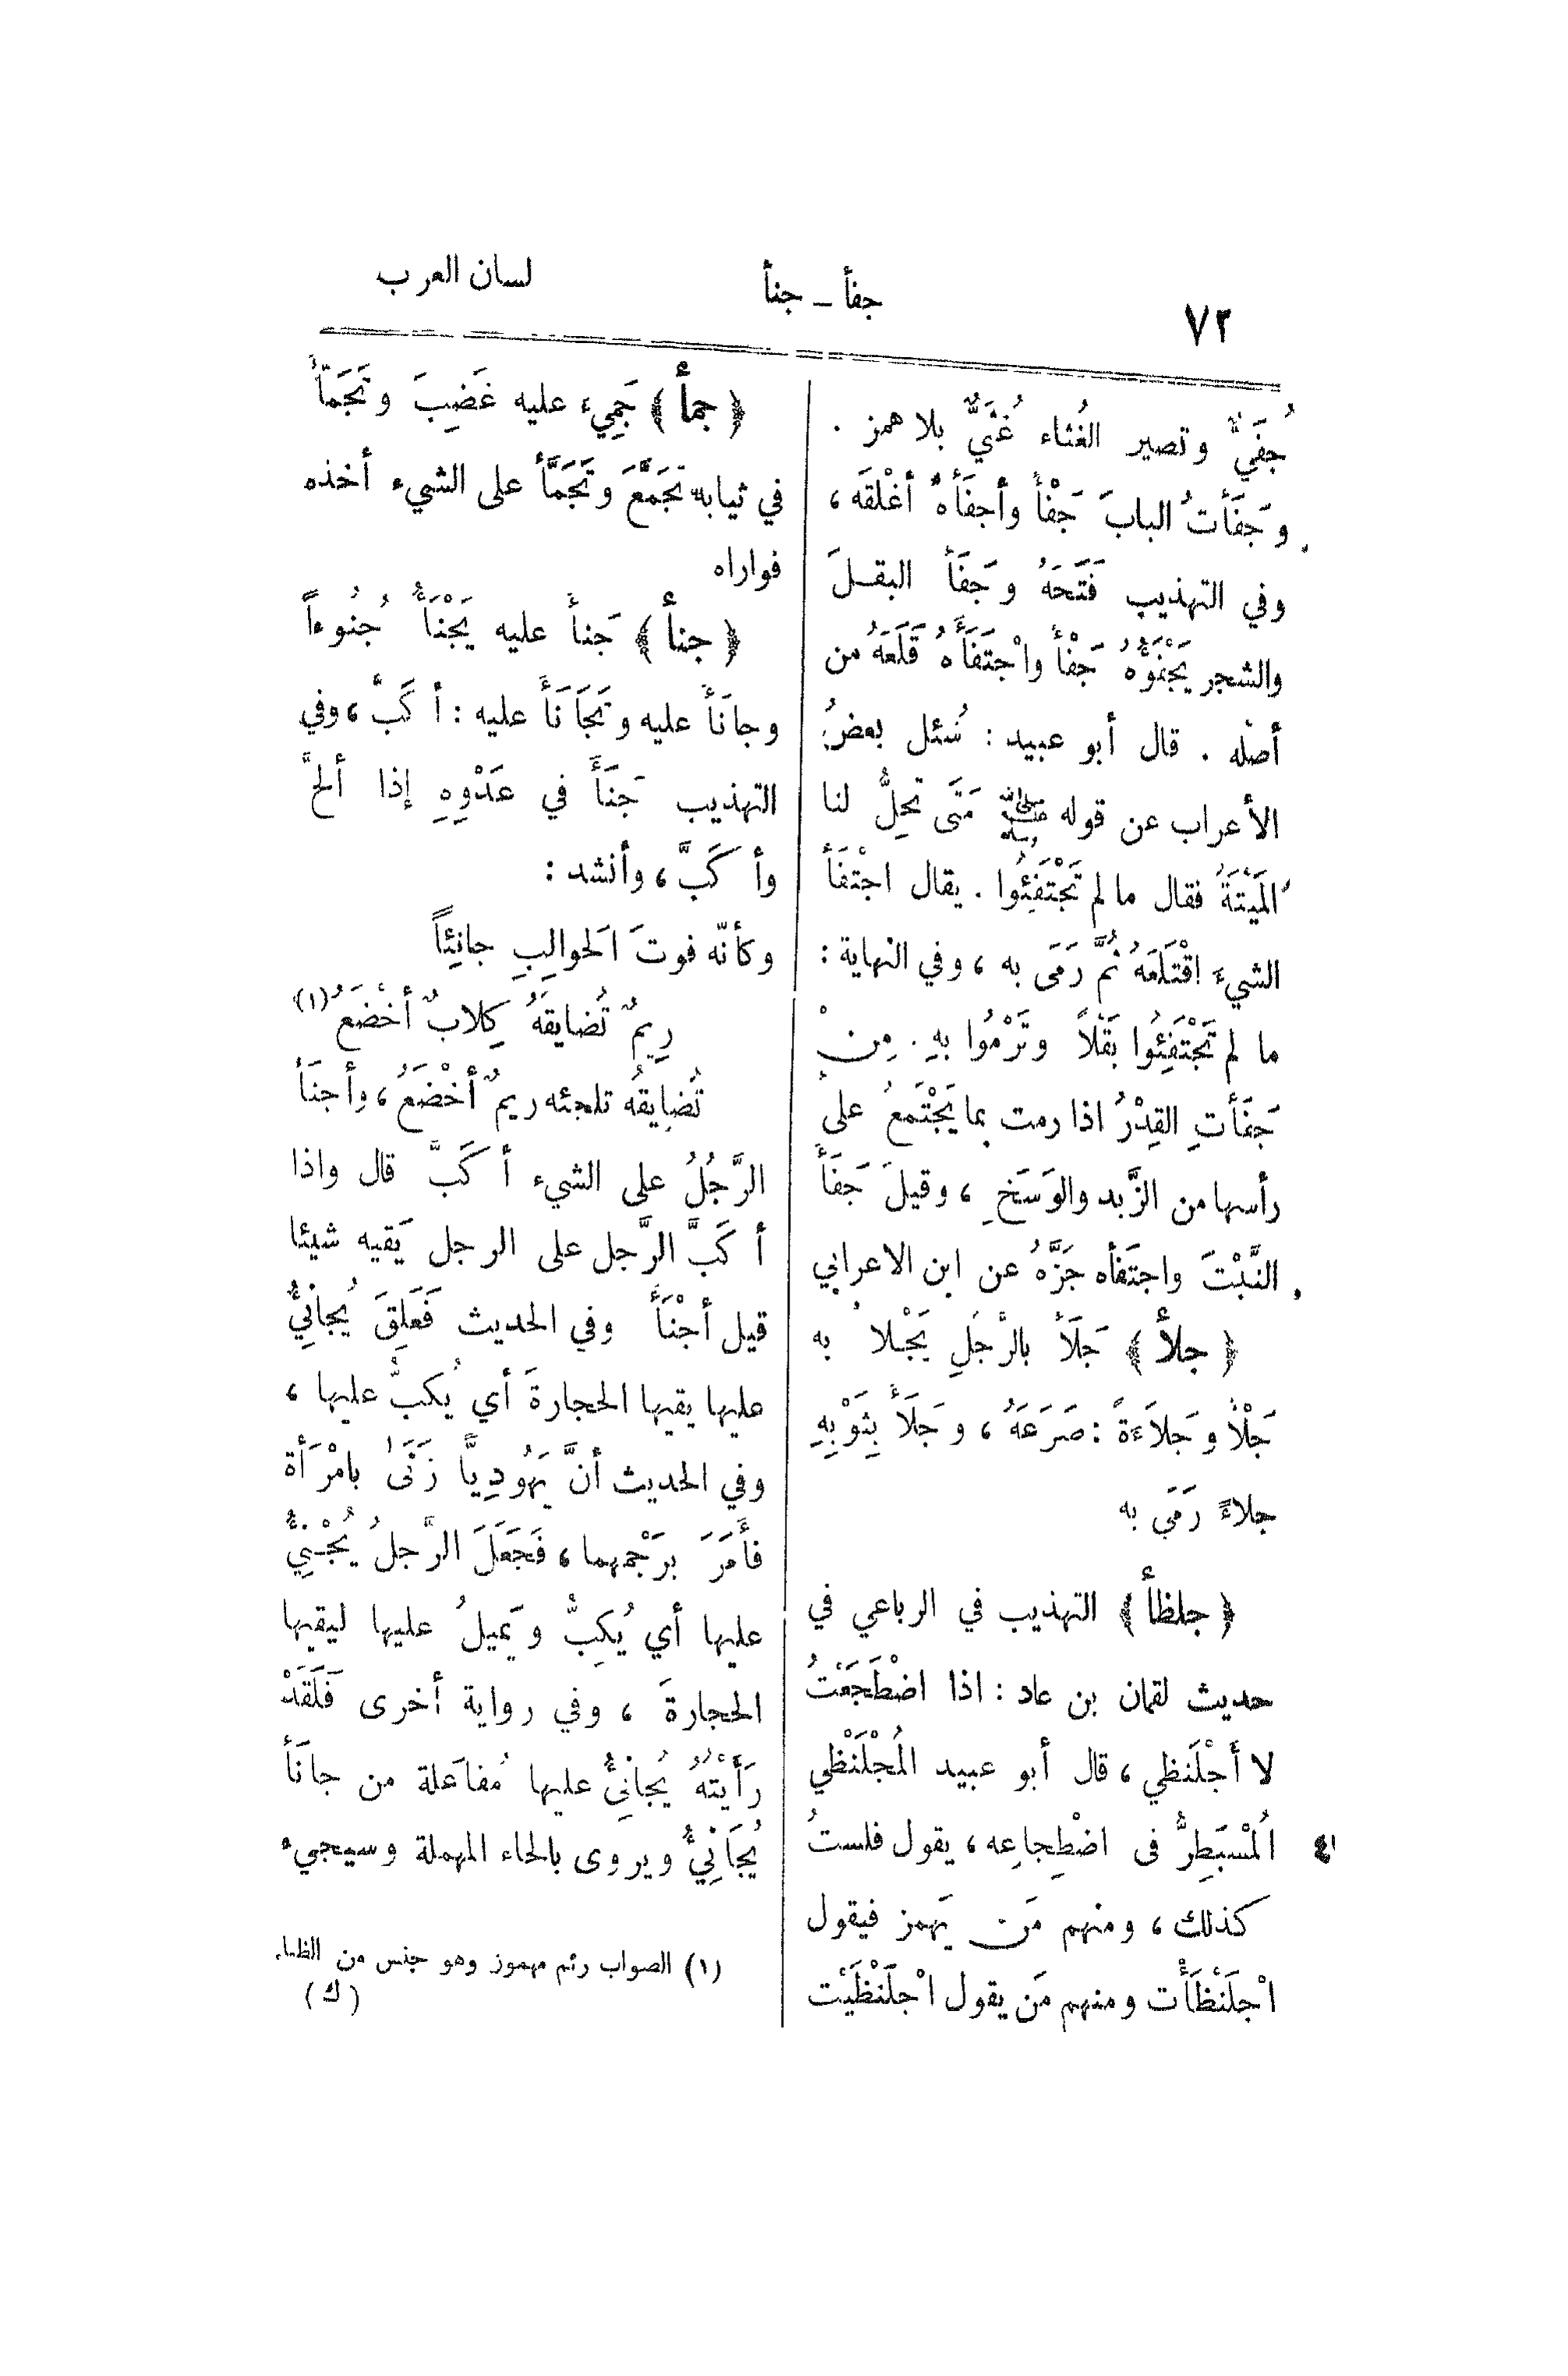 ٧٢
جفأ ــ جنأ
لسان العرب
جُفَيٌّ وتصير الغُثاء غُثَيٌّ بلا همز .
وَجَفَأتُ البابَ جَفْأً وأجفَأهُ أغْلقَه ،
وفي التهذيب فَتَحَهُ وجَفَأَ البقلَ
والشجر يَجْفَؤُهُ جَفْأً واجْتَفَأَهُ قَلَعَهُ من
أصله . قال أبو عبيد : سُئل بعضُ
الأعراب عن قوله ﷺ مَتَى تَحِلُّ لنا
المَيْتَةُ فقال ما لم تَجْتَفِئُوا . يقال اجْتَفَأَ
الشيءَ اقْتَلَعَهُ ثُمَّ رَمَى به ، وفي النهاية :
ما لم تَجْتَفِئُوا بَقْلاً وتَرْمُوا بهِ . مِنْ
جَفَأتِ القِدْرُ اذا رمت بما يَجْتَمعُ على
رأسها من الزَّبد والوَسَخِ ، وقيلَ جَفَأَ
النَّبْتَ واجتَفأه جَزَّهُ عن ابن الاعرابي
﴿ جلأ ﴾ جَلَأَ بالرَّجُلِ يَجْلأ به
جَلْأً وجَلاَءَةً : صَرَعَهُ ، وجَلَأَ بِثَوْبِهِ
جلاءً رَمَى به
﴿ جلظأ ﴾ التهذيب في الرباعي في
حديث لقمان بن عاد : اذا اضْطَجَعْتُ
لا أَجْلَنظي ، قال أبو عبيد المُجْلَنْظي
المُسْبَطِرُّ فى اضْطِجاعِه ، يقول فلستُ
كذلك ، ومنهم مَن يَهمز فيقول
اجْلَنْظَأْت ومنهم مَن يقول اجْلَنْظَيْت
﴿ جمأ ﴾ جَمِيءَ عليه غَضِبَ وتَجَمَّأَ
في ثيابه تجَمَّعَ وتَجَمَّأَ على الشيء أخذه
فواراه
﴿ جنأ ﴾ جَنأَ عليه يَجْنَأُ جُنُوءاً
وجانَأَ عليه وتَجَانَأَ عليه : أكَبَّ ، وفي
التهذيب جَنَأَ في عَدْوِهِ إذا ألحَّ
وأكَبَّ ، وأنشد :
وكأنّه فوتَ الَحوالِبِ جانِئاً
رِيمٌ تُضايقَهُ كِلابٌ أخْضَعُ (١)
تُضايِقُه تلجئه ريمٌ أخْضَعُ ، وأجنَأَ
الرَّجُلُ على الشيء أكَبَّ قال واذا
أكَبَّ الرَّجل على الرجل يَقيه شيئا
قيل أجْنَأَ وفي الحديث فَعَلِقَ يُجانِئُ
عليها يقيها الحجارةَ أي يُكبُّ عليها ،
وفي الحديث أنَّ يَهُودِيًّا زَنَى بامْرَأة
فأمَرَ برَجْمِهما ، فَجَعَلَ الرَّجلُ يُجْنِئُ
عليها أي يُكِبُّ ويَميلُ عليها ليقيها
الحجارةَ ، وفي رواية أخرى فَلَقَدْ
رَأَيْتُهُ يُجانِئُ عليها مُفاعَلة من جانَأَ
يُجَانِئُ ويروى بالحاء المهملة وسيجيء
(١) الصواب رئم مهموز وهو جنس من الظباء
(ك)